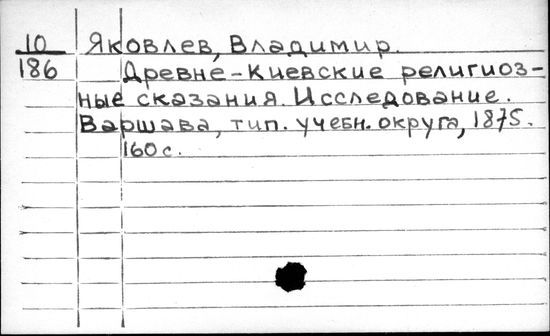 10 Яковлев, Владимир.
186 Древне-Киевские религиоз-
ные сказания. Исследование.
Варшава, тип. учебн. округа, 1875.
160 с.